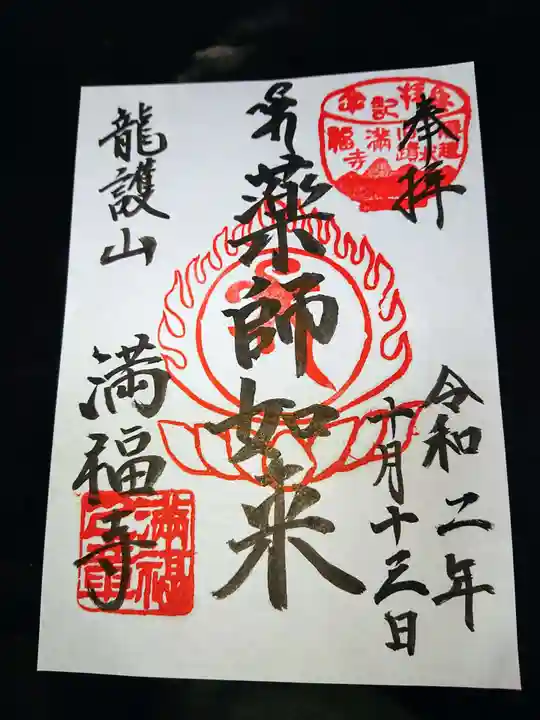 奉拝
令和二年
十月十三日
薬師如来
龍護山
満福寺
満福